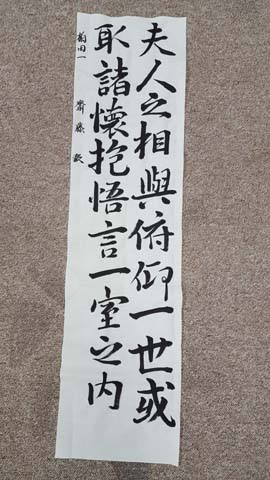 夫人之相與俯仰一世或
取諸懷抱悟言一室之内
菊田一 齋藤